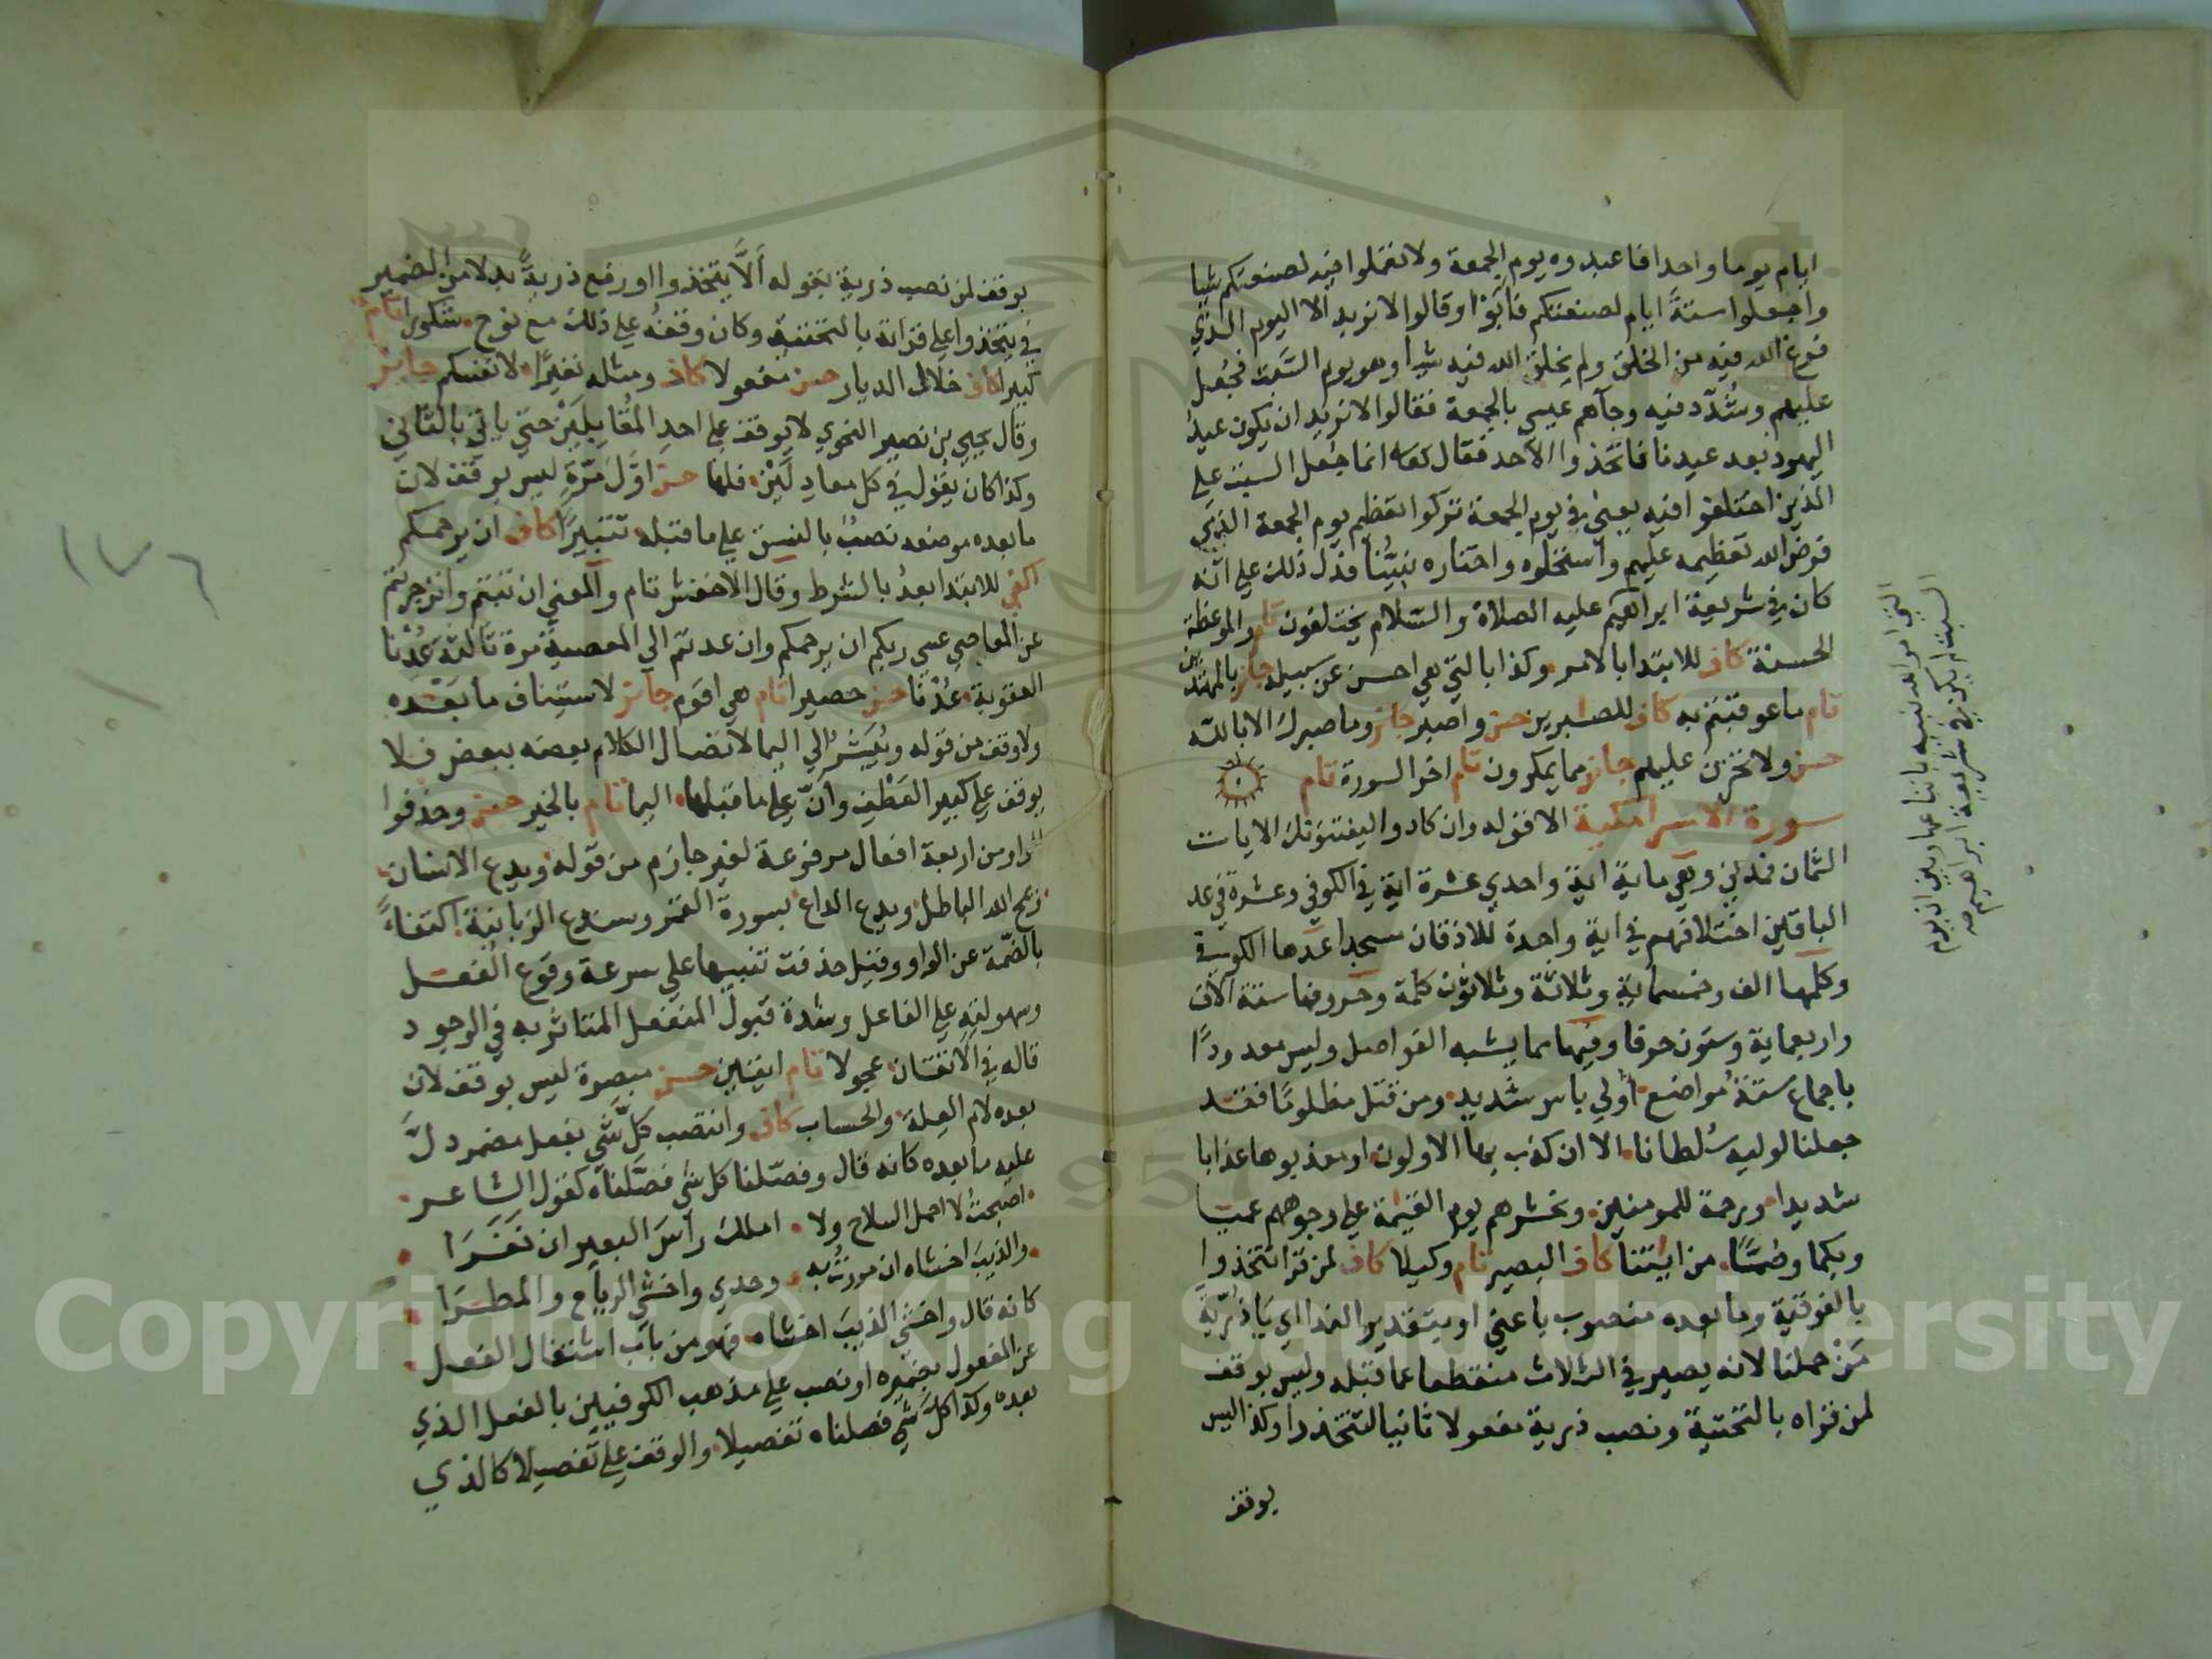 ايام يوما واحدا فاعبدوه يوم الجمعة ولا تعملوا فيه لصنعتكم شيا
واجعلوا ستة ايام لصنعتكم فأبوا وقالوا لا نريد الا اليوم الذي
فرغ الله فيه من الخلق ولم يخلق الله فيه شيا وهو يوم السبت فجعل
عليهم وشدد فيه وجآهم عيسى بالجمعة فقالوا لا نريد ان يكون عيد
اليهود بعد عيدنا فاتخذوا الاحد فقال تعالى انما جعل السبت على
الذين اختلفوا فيه يعني في يوم الجمعة تركوا تعظيم يوم الجمعة الذي
فرض الله تعظيمه عليهم واستحلوه واختاره نبينا فدل ذلك على انه
كان في شريعة ابراهيم عليه الصلاة والسلام يختلفون تام والموعظة
الحسنة كاف للابتدا بالامر وكذا بالتي هي احسن عن سبيله جائز بالمهتدين
تام ما عوقبتم به كاف للصابرين حسن واصبر جائز وما صبرك الا بالله
حسن ولا تحزن عليهم جائز مما يمكرون تام اخر السورة تام
سورة الاسرا مكية الا قوله وان كادوا ليفتنونك الايات
الثمان فمدني وهي ماية اية واحدي عشرة اية في الكوفي وعشرة في عد
الباقين اختلافهم في اية واحدة للاذقان سجدا عدها الكوفي
وكلمها الف وخمسماية وثلاثة وثلاثون كلمة وحروفها ستة آلاف
واربعماية وستون حرفا وفيها مما يشبه الفواصل وليس معدودا
باجماع ستة مواضع أولي باس شديد ومن قتل مظلوما فقد
جعلنا لوليه سلطانا الا ان كذب بها الاولون او معذبوها عذابا
شديدا ورحمة للمومنين ونحشرهم يوم القيمة على وجوههم عميا
وبكما وصما من ايتنا كاف البصير تام وكيلا كاف لمن قرا تتخذوا
بالفوقية وما بعده منصوب باعني او بتقدير الندا اي يا ذرية
من حملنا لانه يصير في الثلاث منقطعا عما قبله وليس بوقف
لمن قراه بالتحتية ونصب ذرية مفعولا ثانيا لتتخذوا وكذا ليس
يوقف
بوقف لمن نصب ذرية بقوله ألا يتخذوا او رفع ذرية بدلا من الضمير
في يتخذوا على قراة بالتحتية وكان وقفه على ذلك مع نوح شكورا تام
كبيرا كاف خلال الديار حسن مفعولا كاف ومثله نفيرا لانفسكم جائز
وقال يحيى بن نصير النحوي لا يوقف على احد المقابلين حتى ياتي بالثاني
وكذا كان يقول في كل معادلين فلها حسن اول مرة ليس بوقف لان
ما بعده موضعه نصب بالنسق على ما قبله تتبيرا كاف ان يرحمكم
اكفى للابتدا بعد بالشرط وقال الاخفش تام والمعنى ان تبتم وانزجرتم
عن المعاصي عسى ربكم ان يرحمكم وان عدتم الى المعصية مرة ثالثة عدنا
العقوبة عدنا حسن حصيرا تام هي اقوم جائز لاستيناف ما بعده
ولا وقف من قوله ويبشر الى اليما لاتصال الكلام بعضه ببعض فلا
يوقف على كبيرا لعطف وأن على ما قبلها اليما تام بالخير حسن وحذفوا
الواو من اربعة افعال مرفوعة لغير جازم من قوله ويدع الانسان
ويمح الله الباطل ويدع الداع بسورة القمر وسندع الزبانية اكتفاء
بالضمة عن الواو وقيل حذفت تنبيها على سرعة وقوع الفعل
وسهولته على الفاعل وشدة قبول المنفعل المتاثر به في الوجود
قاله في الاتقان عجولا تام ايتين حسن مبصرة ليس بوقف لان
بعده لام العلة والحساب كاف وانتصب كل شي بفعل مضمر دل
عليه ما بعده كانه قال وفصلنا كل شي فصلناه كقول الشاعر
اصبحت لا احمل السلاح ولا املك رأس البعير ان نفرا
والذيب اخشاه ان مررت به وحدي واخشى الرياح والمطرا
كانه قال واخشى الذيب اخشاه فهو من باب اشتغال الفعل
عن المفعول بضميره او نصب على مذهب الكوفيين بالفعل الذي
بعده وكذا كل شي فصلناه تفصيلا والوقف على تفصيلا كالذي
١٧٦
Copyright © King Saud University
1957